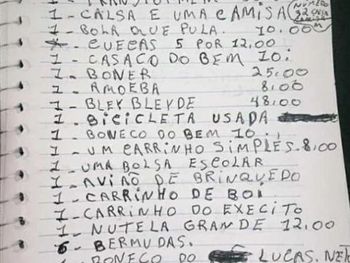 1 - CALSA E UMA CAMISA
1 - BOLA QUE PULA. 10.00
* - CUECAS 5 POR 12,00
1 - CASACO DO BEM 10:
1 - BONER 25:00
1 - AMOEBA 8:00
1 - BLEY BLEYDE 48:00
1 - BICICLETA USADA
1 - BONECO DO BEM 10:,
1 - UM CARRINHO SIMPLES. 8,00
1 - UMA BOLSA ESCOLAR
1 - AVIÃO DE BRINQUEDO
1 - CARRINHO DE BOI
1 - CARRINHO DO EXECITO
1 - NUTELA GRANDE 12,00
6 - BERMUDAS.
BONECO DO LUCAS. NET